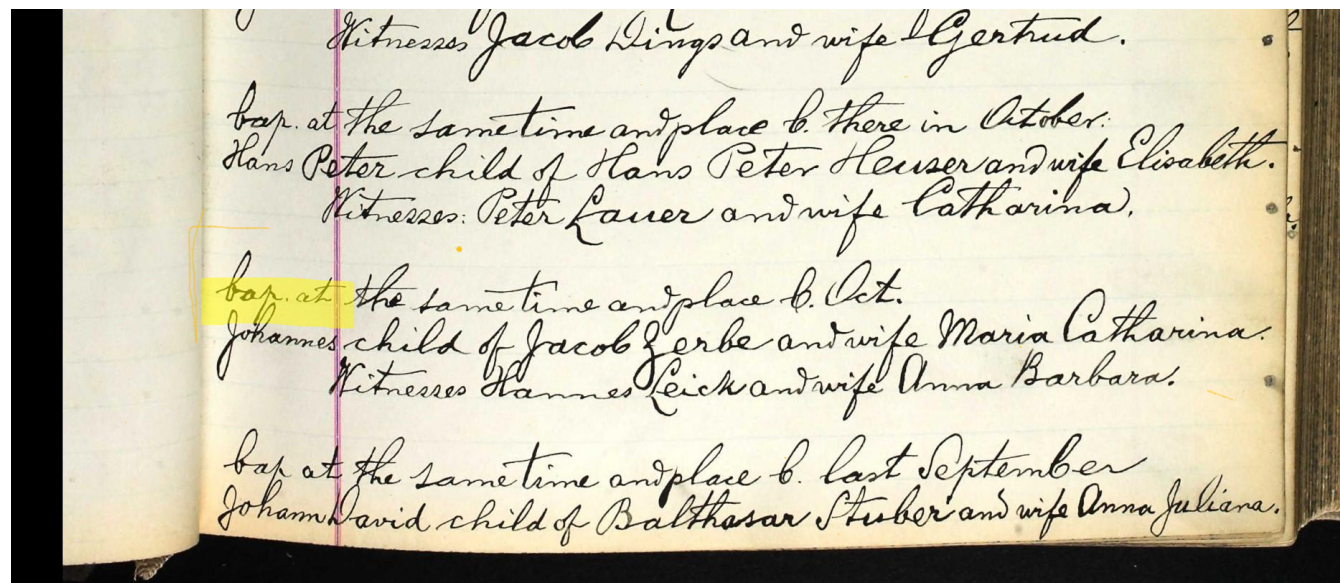 Witnesses Jacob Dings and wife Gertrud.
bap. at the same time and place b. there in October.
Hans Peter child of Hans Peter Heuser and wife Elisabeth.
Witnesses: Peter Lauer and wife Catharina.
bap. at the same time and place b. Oct.
Johannes child of Jacob Zerbe and wife Maria Catharina.
Witnesses Hannes Leick and wife Anna Barbara.
bap at the same time and place b. last September
Johann David child of Balthasar Stuber and wife Anna Juliana.